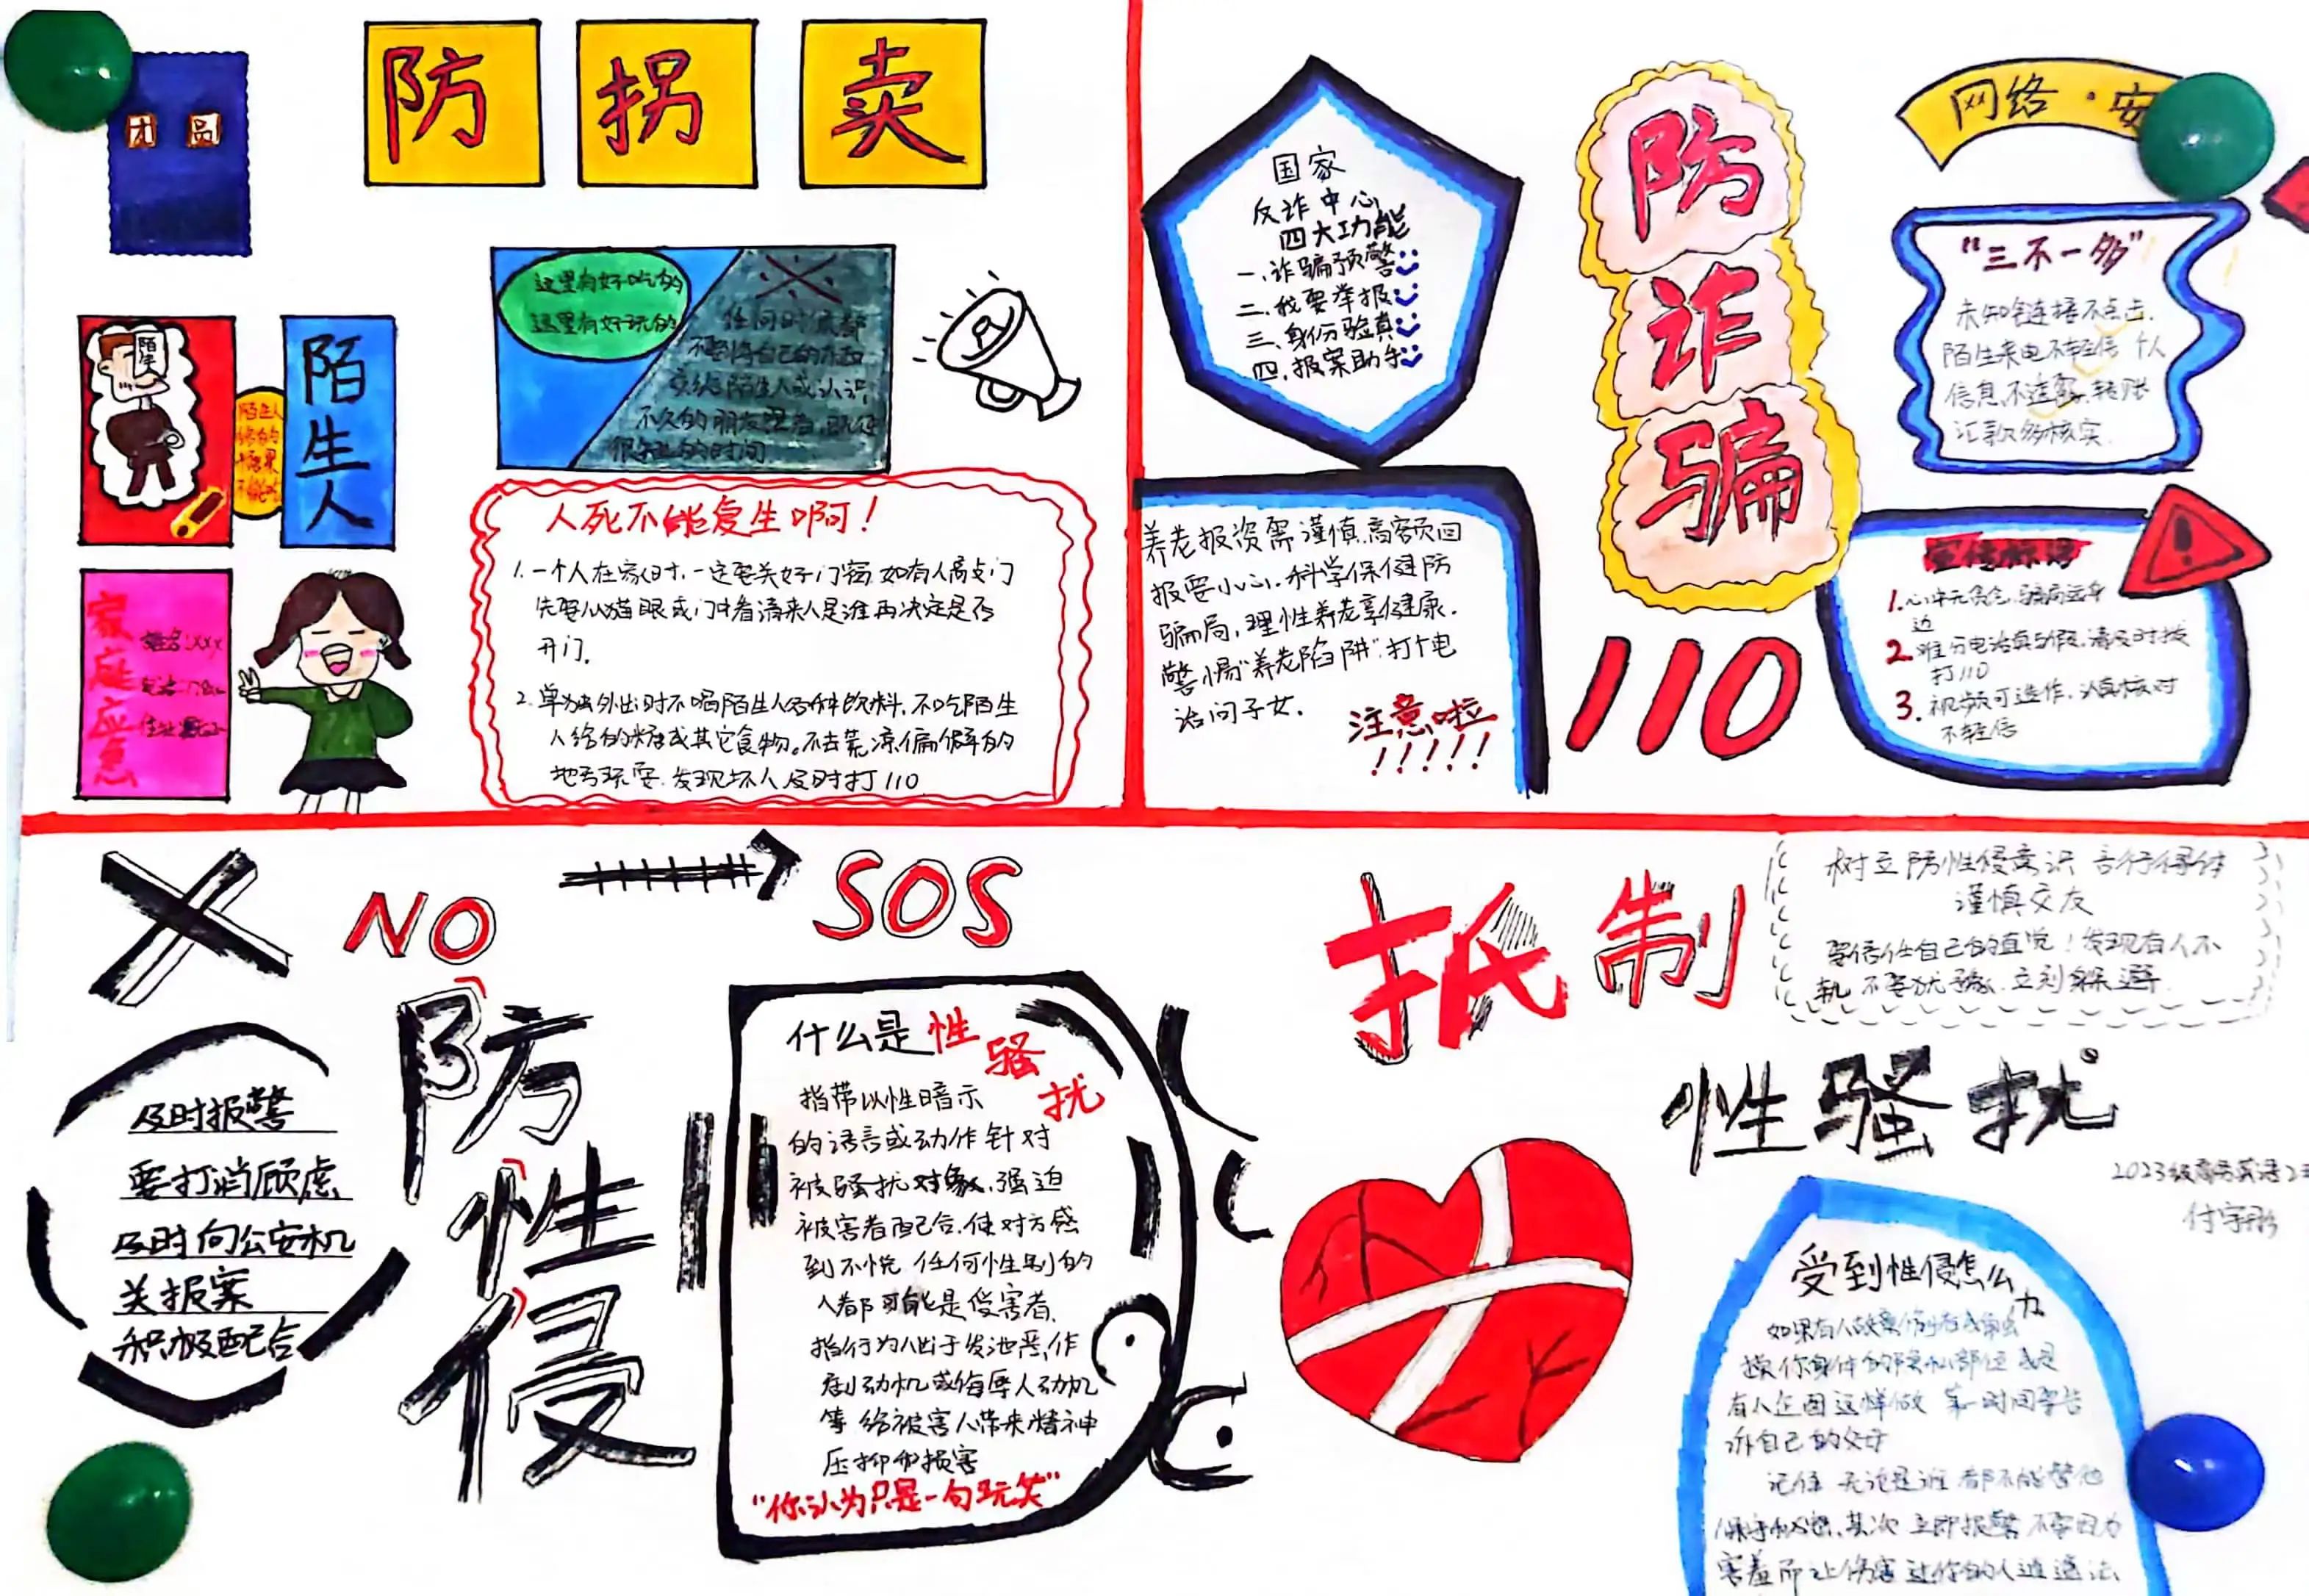 防拐卖
这里有好吃的
这里有好玩的
任何时候都
不要将自己的
交给陌生人或认识
不久的朋友
陌生人
陌生人
家庭应急
姓名:xxx
人死不能复生啊！
1.一个人在家时.一定要关好门窗.如有人敲门
先要从猫眼或门缝看清来人是谁再决定是否
开门.
2.单独外出时不喝陌生人的饮料.不吃陌生
人给的糖或其它食物。不去荒凉偏僻的
地方玩耍.发现坏人及时打110
国家
反诈中心
四大功能
一.诈骗预警
二.我要举报
三.身份验真
四.报案助手
防诈骗
网络·安
“三不一多”
未知链接不点击.
陌生来电不轻信 个人
信息不透露.转账
汇款多核实.
养老投资需谨慎.高额回
报要小心.科学保健防
骗局,理性养老享健康.
警惕“养老陷阱”.打个电
话问子女.
注意啦
!!!!!
110
1.心中无贪念.骗局远身
边
2.难分电话真与假.请及时拨
打110
3.视频可造作.认真核对
不轻信
NO
SOS
防性侵
及时报警
要打消顾虑
及时向公安机
关报案
积极配合
什么是性骚扰
指带以性暗示
的语言或动作针对
被骚扰对象.强迫
被害者配合.使对方感
到不悦 任何性别的
人都可能是受害者.
指行为人出于发泄恶作
剧动机或侮辱人动机
等 给被害人带来精神
压抑和损害
“你认为只是一句玩笑”
抵制
树立防性侵意识 言行得体
谨慎交友
要信任自己的直觉！发现有人不
轨 不要犹豫.立刻躲避.
性骚扰
2023级商务英语2
付宇彤
受到性侵怎么办
如果有人故意偷看或触
摸你身体的隐私部位 或是
有人企图这样做 第一时间要告
诉自己的父母
记住 无论是谁 都不能替他
保守秘密.其次 立即报警 不要因为
害羞而让伤害过你的人逍遥法